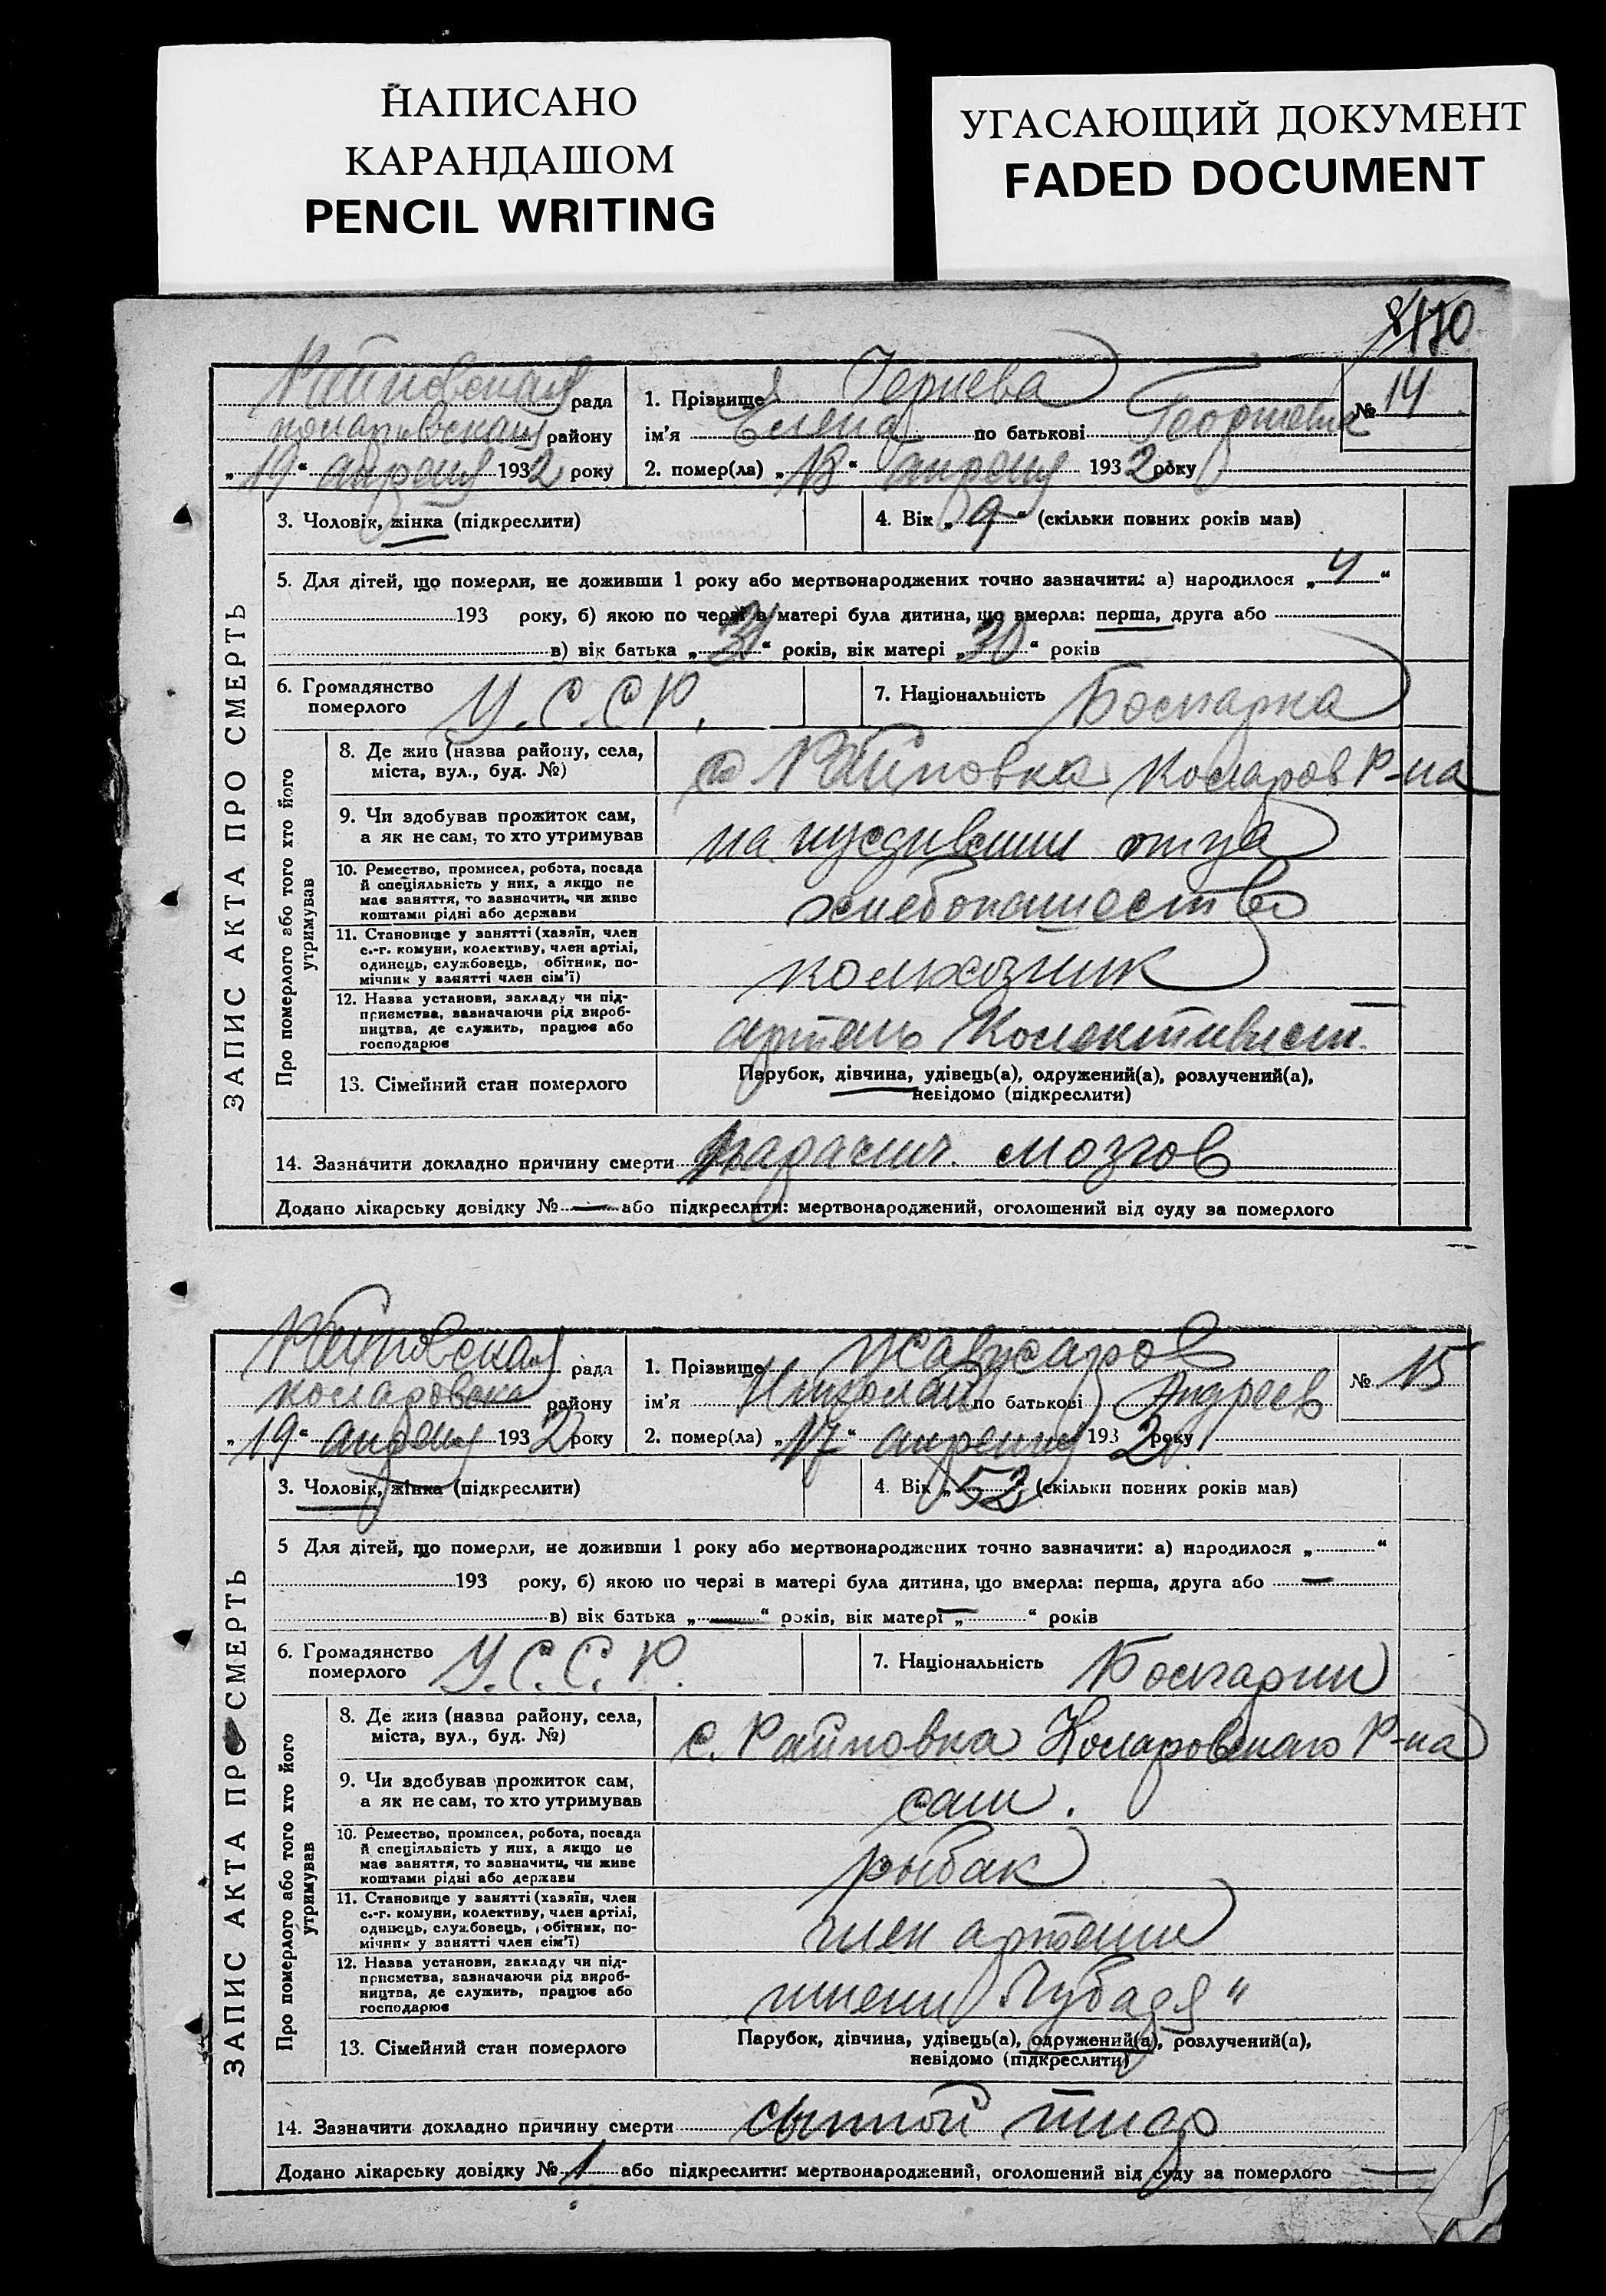 НАПИСАНО
КАРАНДАШОМ
PENCIL WRITING
УГАСАЮЩИЙ ДОКУМЕНТ
FADED DOCUMENT
110
Райновская рада
коларовская району
„19“ апреля 1932 року
1. Прізвище Чернева
ім’я Елена по батькові Георгиевна
№ 14
2. помер(ла) „18“ апреля 1932 року
ЗАПИС АКТА ПРО СМЕРТЬ
3. Чоловік, жінка (підкреслити)
4. Вік „9“ (скільки повних років мав)
5. Для дітей, що померли, не доживши 1 року або мертвонароджених точно зазначити: а) народилося „ “
193 року, б) якою по черзі в матері була дитина, що вмерла: перша, друга або
в) вік батька „31“ років, вік матері „30“ років
6. Громадянство померлого У.С.С.Р.
7. Національність Болгарка
Про померлого або того хто його утримував
8. Де жив (назва району, села,
міста, вул., буд. №)
с Райновка Коларов Р-на
9. Чи здобував прожиток сам,
а як не сам, то хто утримував
на иждивении отца
10. Ремество, промисел, робота, посада
й спеціяльність у них, а якщо не
має заняття, то зазначити, чи живе
коштами рідні або держави
хлебопашество
11. Становище у занятті (хазяїн, член
с.-г. комуни, колективу, член артілі,
одинець, службовець, обітник, по-
мічник у занятті член сім’ї)
колхозник
12. Назва установи, закладу чи під-
приємства, зазначаючи рід вироб-
ництва, де служить, працює або
господарює
артель Колективист.
13. Сімейний стан померлого
Парубок, дівчина, удівець(а), одружений(а), розлучений(а),
невідомо (підкреслити)
14. Зазначити докладно причину смерти паралич. мозгов
Додано лікарську довідку № — або підкреслити: мертвонароджений, оголошений від суду за померлого
Райновская рада
коларовска району
„19“ апреля 1932 року
1. Прізвище
ім’я Николай по батькові Андреев
№ 15
2. помер(ла) „17“ апреля 1932 року
ЗАПИС АКТА ПРО СМЕРТЬ
3. Чоловік, жінка (підкреслити)
4. Вік „52 (скільки повних років мав)
5 Для дітей, що померли, не доживши 1 року або мертвонароджених точно зазначити: а) народилося „ “
193 року, б) якою по черзі в матері була дитина, що вмерла: перша, друга або —
в) вік батька „—“ років, вік матері „—“ років
6. Громадянство померлого У.С.С.Р.
7. Національність Болгарин
Про померлого або того хто його утримував
8. Де жив (назва району, села,
міста, вул., буд. №)
с. Райновка Коларовскаго Р-на
9. Чи здобував прожиток сам,
а як не сам, то хто утримував
сам.
10. Ремество, промисел, робота, посада
й спеціяльність у них, а якщо не
має заняття, то зазначити, чи живе
коштами рідні або держави
рыбак
11. Становище у занятті (хазяїн, член
с.-г. комуни, колективу, член артілі,
одинець, службовець, обітник, по-
мічник у занятті член сім’ї)
член артели
12. Назва установи, закладу чи під-
приємства, зазначаючи рід вироб-
ництва, де служить, працює або
господарює
имени
13. Сімейний стан померлого
Парубок, дівчина, удівець(а), одружений(а), розлучений(а),
невідомо (підкреслити)
14. Зазначити докладно причину смерти сыпной тиф
Додано лікарську довідку № 1 або підкреслити: мертвонароджений, оголошений від суду за померлого —